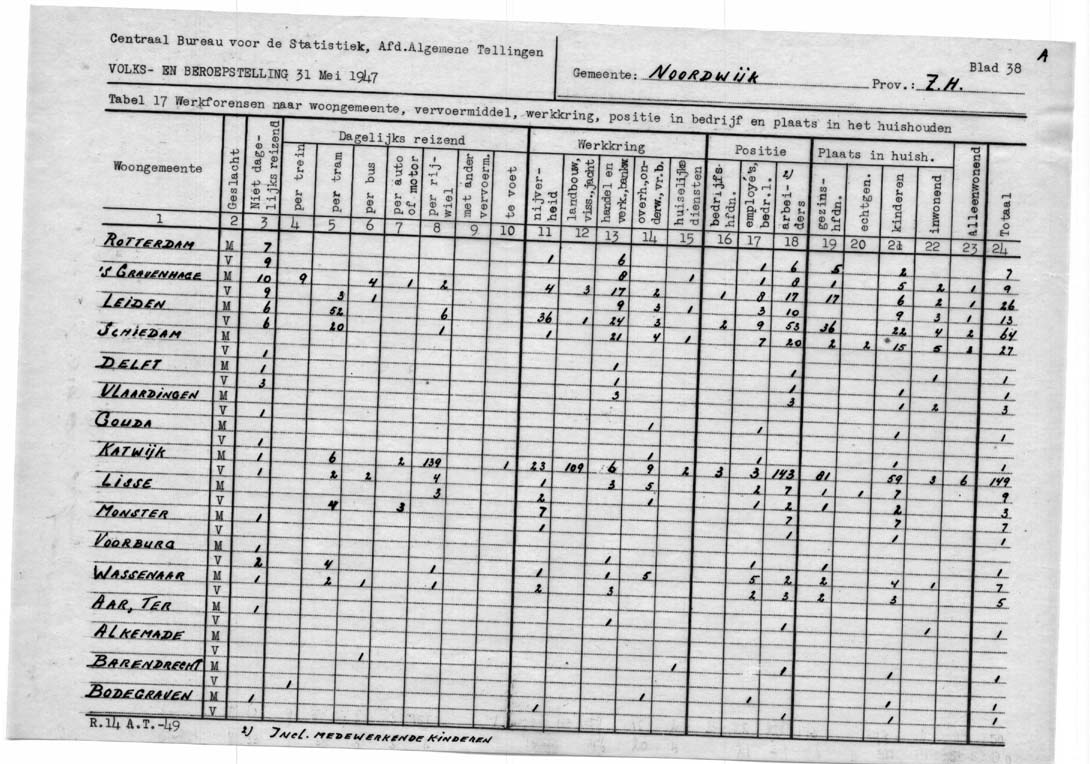 Centraal Bureau voor de Statistiek, Afd.Algemene Tellingen
VOLKS- EN BEROEPSTELLING 31 Mei 1947
Gemeente: NOORDWIJK Prov.: Z.H. Blad 38 A
Tabel 17 Werkforensen naar woongemeente, vervoermiddel, werkkring, positie in bedrijf en plaats in het huishouden
Woongemeente
Geslacht
Niet dage-
lijks reizend
Dagelijks reizend
per trein
per tram
per bus
per auto
of motor
per rij-
wiel
met ander
vervoerm.
te voet
Werkkring
nijver-
heid
landbouw,
viss.,jacht
handel en
verk.,bankw
overh.,on-
derw.,vr.b.
huiselijke
diensten
Positie
bedrijfs-
hfdn.
employe's,
bedr.l.
arbei- 2)
ders
Plaats in huish.
gezins-
hfdn.
echtgen.
kinderen
inwonend
alleenwonend
Totaal
1 2 3 4 5 6 7 8 9 10 11 12 13 14 15 16 17 18 19 20 21 22 23 24
ROTTERDAM M 7 1 6 1 6 5 2 7
V 9 8 1 1 8 1 5 2 1 9
'S GRAVENHAGE M 10 9 4 1 2 4 3 17 2 1 8 17 17 6 2 1 26
V 9 3 1 9 3 1 3 10 9 3 1 13
LEIDEN M 6 52 6 36 1 24 3 2 9 53 36 22 4 2 64
V 6 20 1 1 21 4 1 7 20 2 2 15 5 3 27
SCHIEDAM M
V 1 1 1 1 1
DELFT M 1 1 1 1 1
V 3 3 3 1 2 3
VLAARDINGEN M
V 1 1 1 1 1
GOUDA M
V 1 1 1 1 1
KATWIJK M 1 6 2 139 1 23 109 6 9 2 3 3 143 81 59 3 6 149
V 1 2 2 4 1 3 5 2 7 1 1 7 9
LISSE M 3 2 1 1 2 1 2 3
V 4 3 7 7 7 7
MONSTER M 1 1 1 1 1
V
VOORBURG M 1 1 1 1 1
V 2 4 1 1 1 5 5 2 2 4 1 7
WASSENAAR M 1 2 1 1 2 3 2 3 2 3 5
V
AAR, TER M 1 1 1 1 1
V
ALKEMADE M
V 1 1 1 1 1
BARENDRECHT M
V 1 1 1 1 1
BODEGRAVEN M 1 1 1 1 1
V
R.14 A.T.-49
2) INCL. MEDEWERKENDE KINDEREN